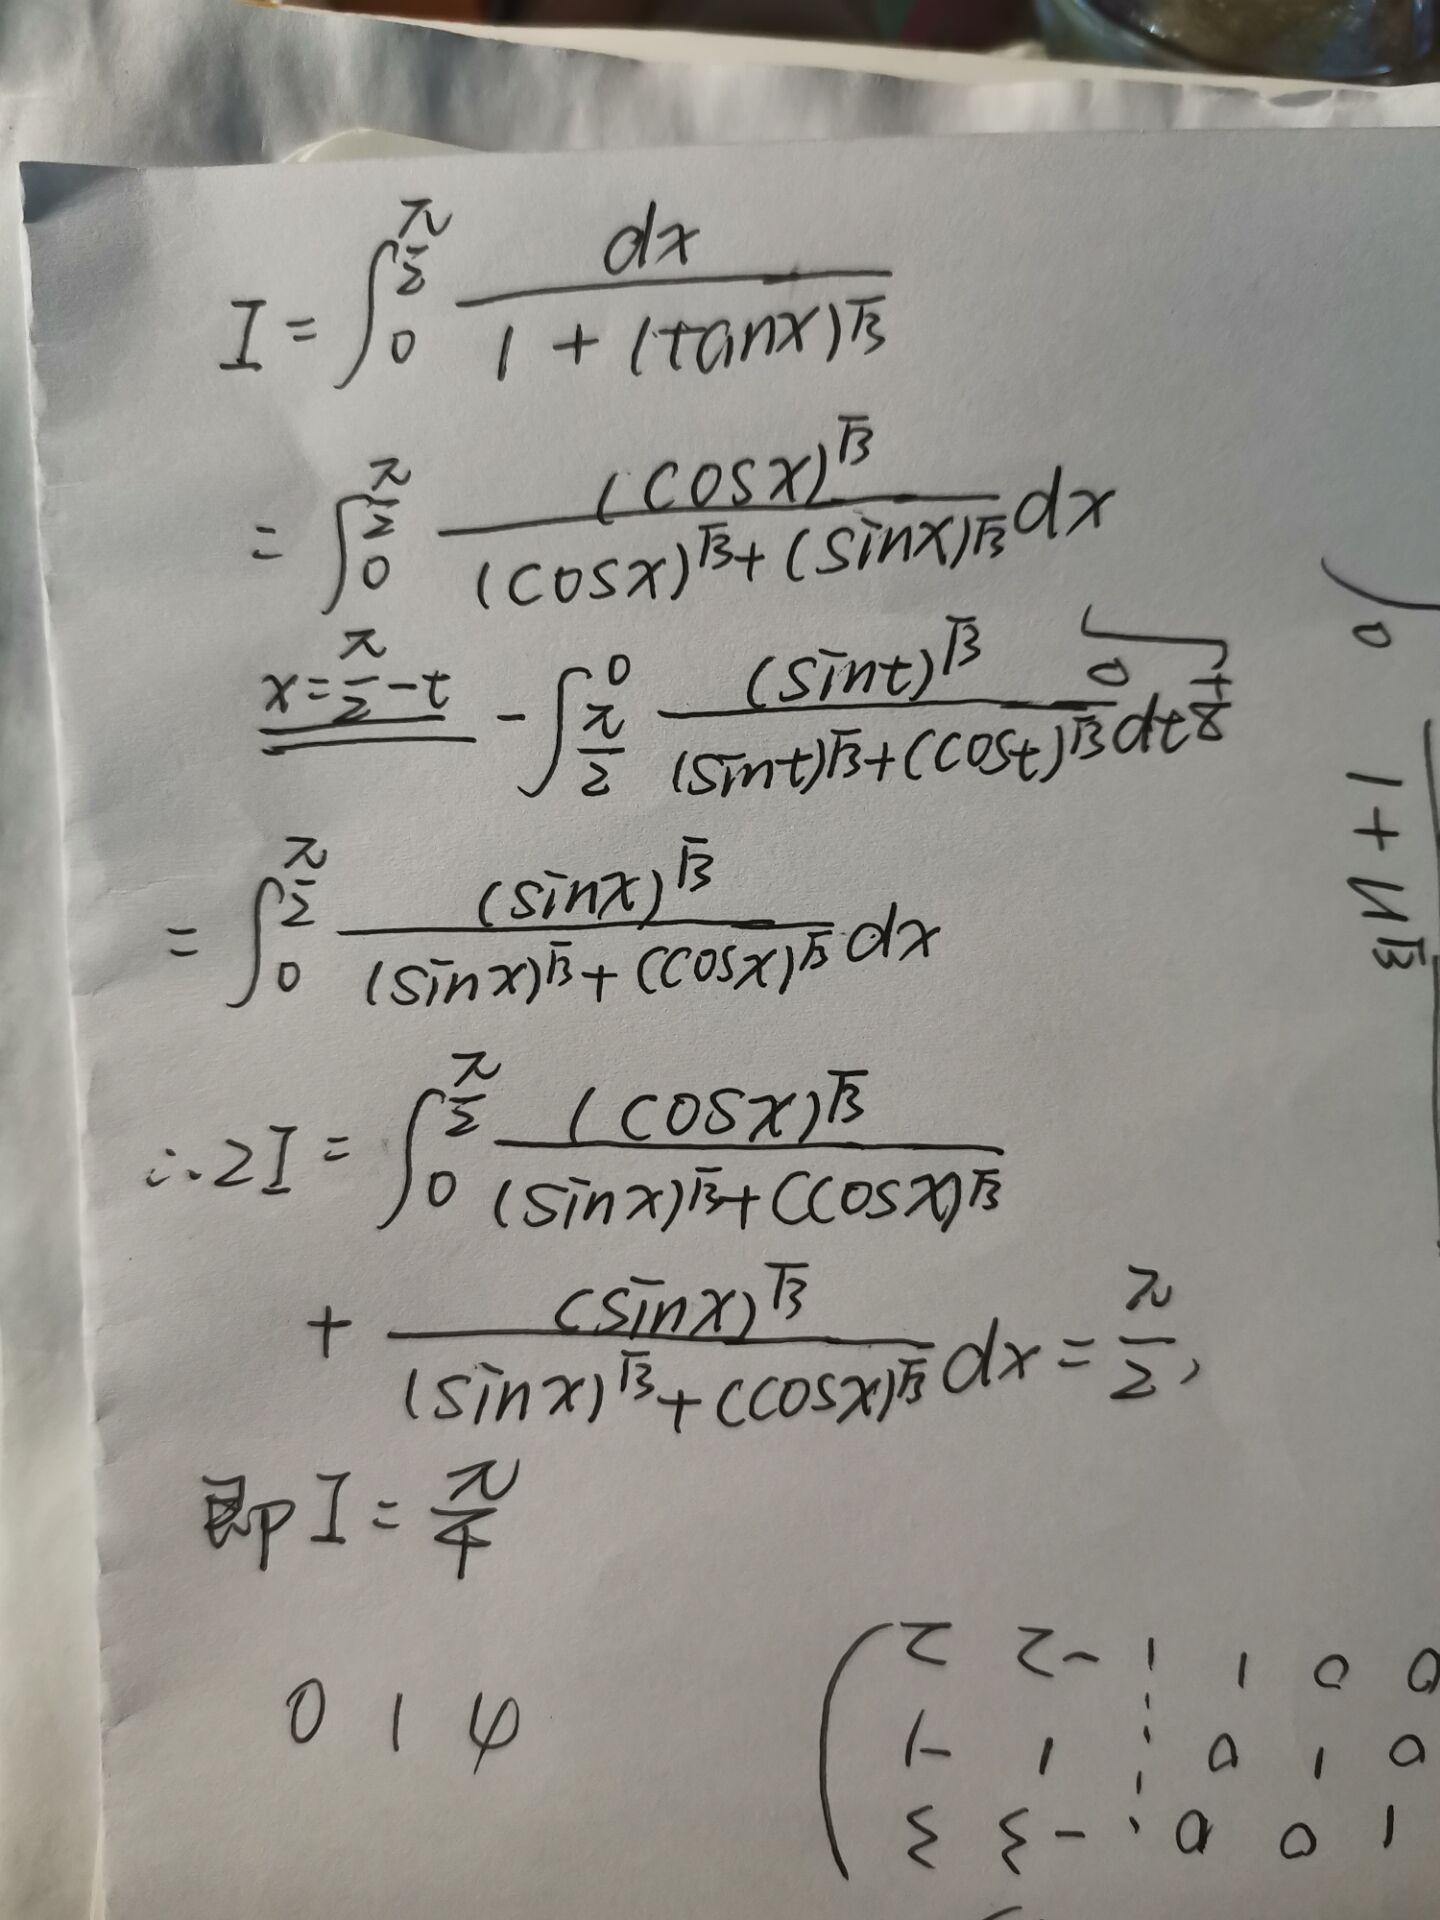 I = ∫_0^{π/2} dx / (1 + (tanx)^{√3})
= ∫_0^{π/2} (cosx)^{√3} / ((cosx)^{√3} + (sinx)^{√3}) dx
x = π/2 - t  - ∫_{π/2}^0 (sint)^{√3} / ((sint)^{√3} + (cost)^{√3}) dt
= ∫_0^{π/2} (sinx)^{√3} / ((sinx)^{√3} + (cosx)^{√3}) dx
∴ 2I = ∫_0^{π/2} (cosx)^{√3} / ((sinx)^{√3} + (cosx)^{√3})
+ (sinx)^{√3} / ((sinx)^{√3} + (cosx)^{√3}) dx = π/2,
即 I = π/4
1 + u^{√3}
0